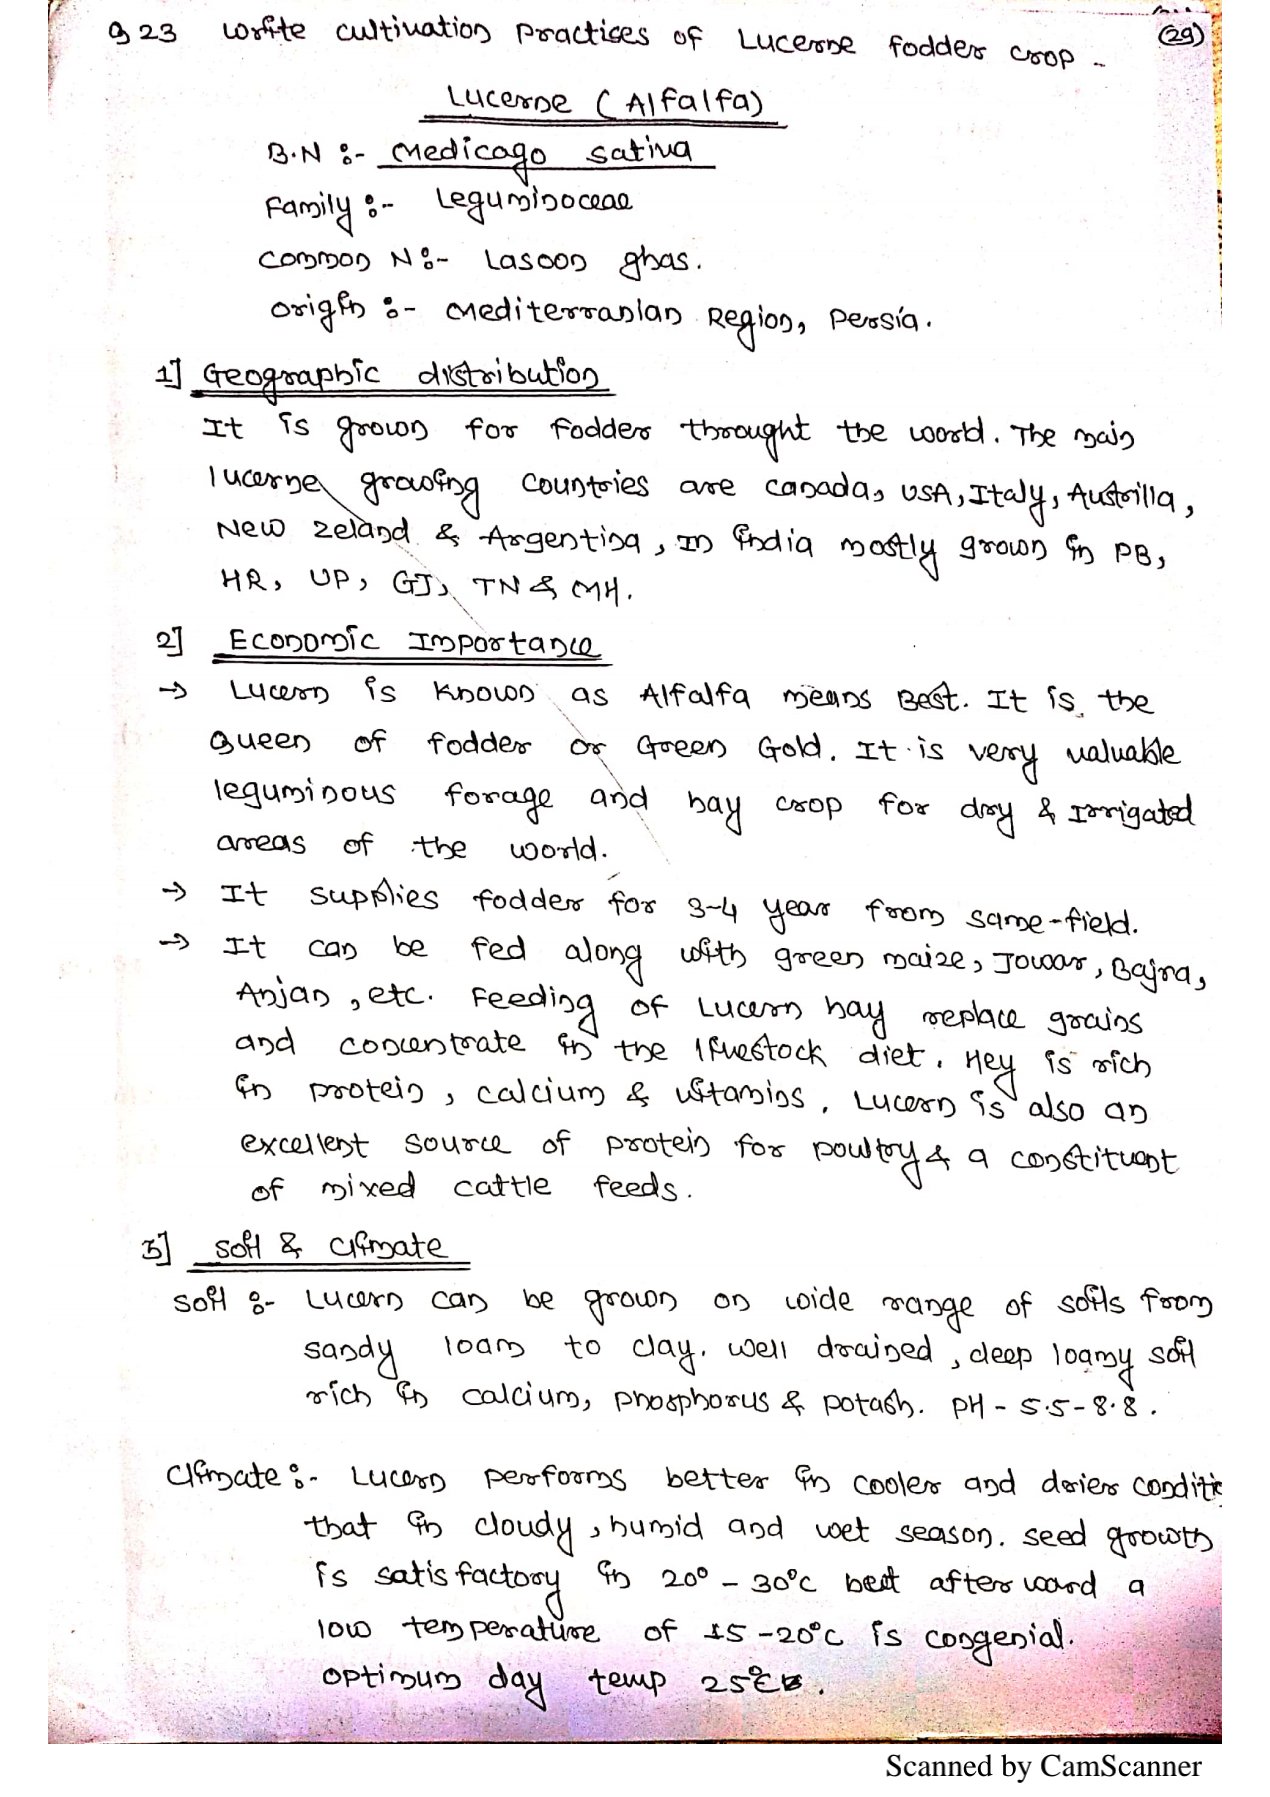 (29)
Q 23 Write cultivation practices of Lucerne fodder crop -
Lucerne (Alfalfa)
B.N :- Medicago sativa
Family :- Leguminoceae
Common N :- Lasoon ghas.
Origin :- Mediterranian Region, Persia.
1] Geographic distribution
It is grown for fodder throught the world. The main
lucerne growing countries are Canada, USA, Italy, Austrilla,
New Zeland & Argentina, In india mostly grown in PB,
HR, UP, GJ, TN & MH.
2] Economic Importance
→ Lucern is known as Alfalfa means Best. It is the
Queen of fodder or Green Gold. It is very valuable
leguminous forage and hay crop for dry & Irrigated
areas of the world.
→ It supplies fodder for 3-4 year from same-field.
→ It can be fed along with green maize, Jowar, Bajra,
Anjan, etc. Feeding of Lucern hay replace grains
and concentrate in the livestock diet. Hey is rich
in protein, calcium & vitamins. Lucern is also an
excellent source of protein for poultry & a constituent
of mixed cattle feeds.
3] Soil & Climate
Soil :- Lucern can be grown on wide range of soils from
sandy loam to clay. well drained, deep loamy soil
rich in calcium, phosphorus & potash. PH - 5.5-8.8.
Climate :- Lucern performs better in cooler and drier conditi
that in cloudy, humid and wet season. seed growth
is satisfactory in 20° - 30°C best after ward a
low temperature of 15-20°C is congenial.
Optimum day temp 25°C.
Scanned by CamScanner